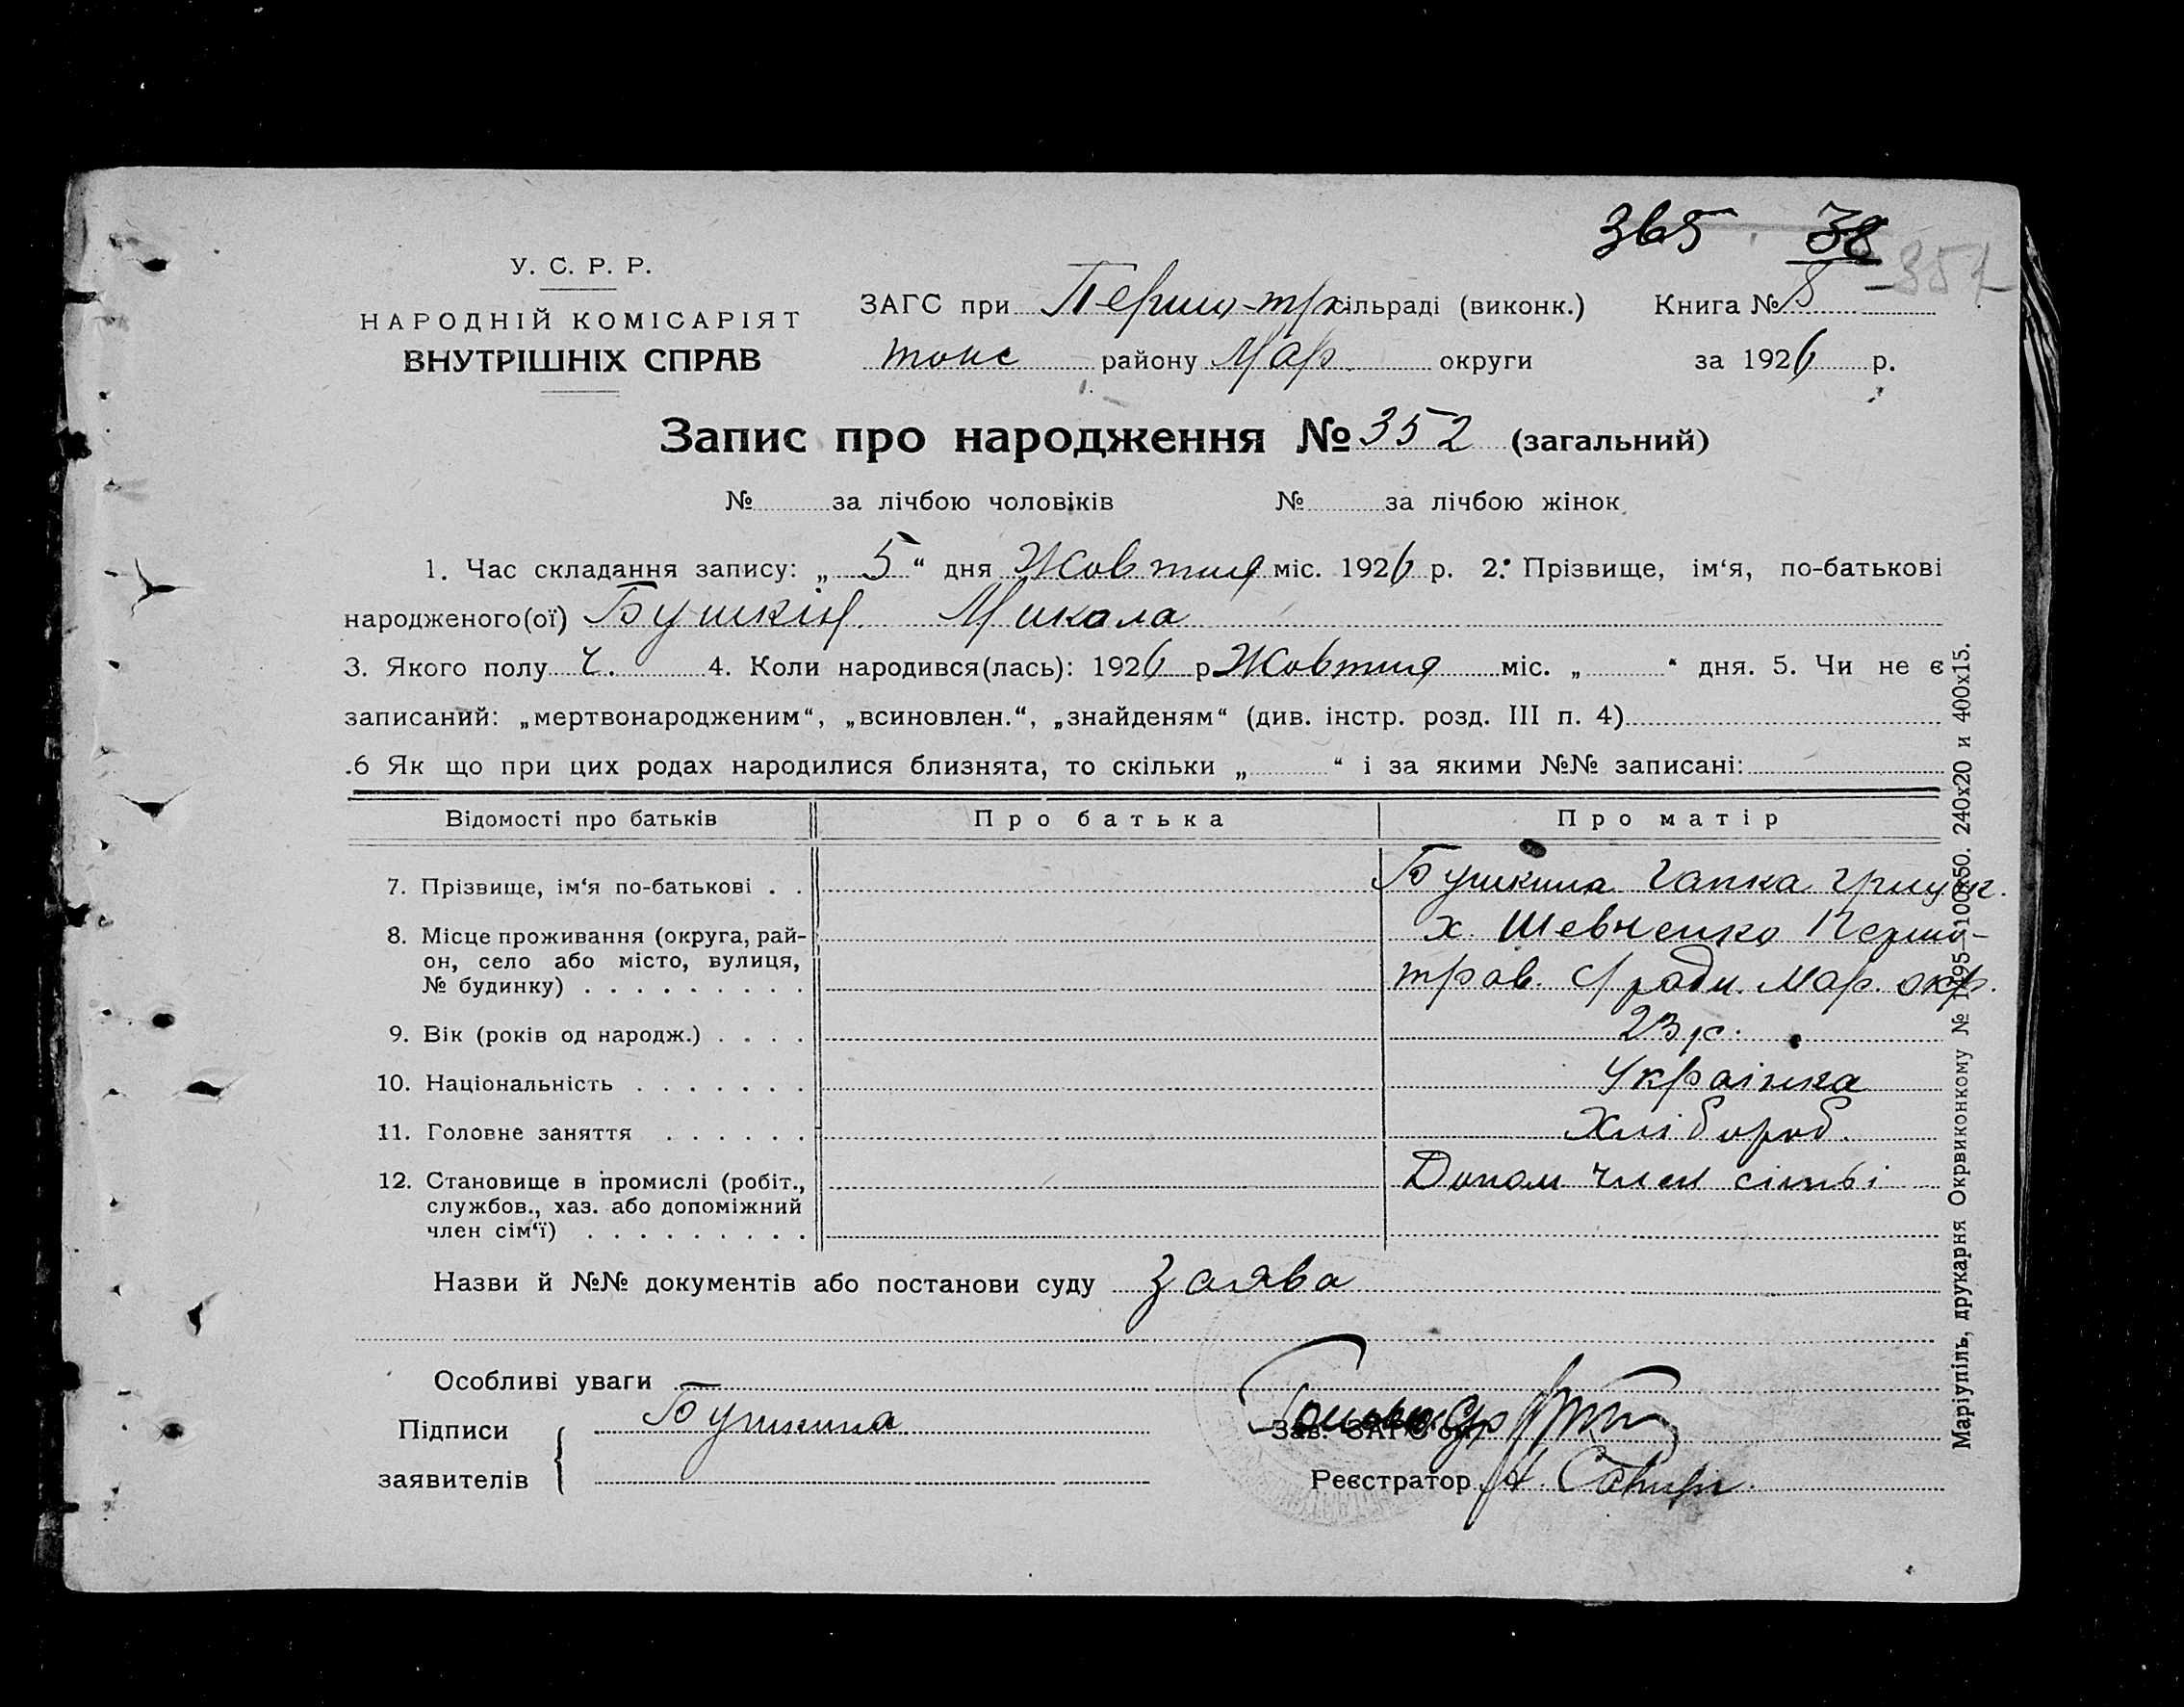 365 38
351
У. С. Р. Р.
НАРОДНІЙ КОМІСАРІЯТ
ВНУТРІШНІХ СПРАВ
ЗАГС при Першо-тр сільраді (виконк.) Книга № 8
району Мар. округи за 1926 р.
Запис про народження № 352 (загальний)
№ за лічбою чоловіків № за лічбою жінок
1. Час складання запису: „ 5 “ дня Жовтня міс. 1926 р. 2. Прізвище, ім‘я, по-батькові
народженого(ої) Бушкін Микола
3. Якого полу ч. 4. Коли народився(лась): 1926 р Жовтня міс. „ “ дня. 5. Чи не є
записаний: „мертвонародженим“, „всиновлен.“, „знайденям“ (див. інстр. розд. III п. 4)
.6 Як що при цих родах народилися близнята, то скільки „ “ і за якими №№ записані:
Відомості про батьків Про батька Про матір
7. Прізвище, ім‘я по-батькові . . Бушкина Гапка
8. Місце проживання (округа, рай- х. Шевченко Першо-
он, село або місто, вулиця, трав. с/ради. Мар. окр.
№ будинку) . . . . . . . . .
9. Вік (років од народж.) . . . . 23 р.
10. Національність . . . . . . . Українка
11. Головне заняття . . . . . . Хлібороб.
12. Становище в промислі (робіт., Допом член сімьі
службов., хаз. або допоміжний
член сім‘ї) . . . . . . . . .
Назви й №№ документів або постанови суду Заява
Особливі уваги
Підписи Бушкина Зав. ЗАГС'ом
заявителів Реєстратор
Маріупіль, друкарня Окрвиконкому № 1195—100х50. 240х20 и 400х15.